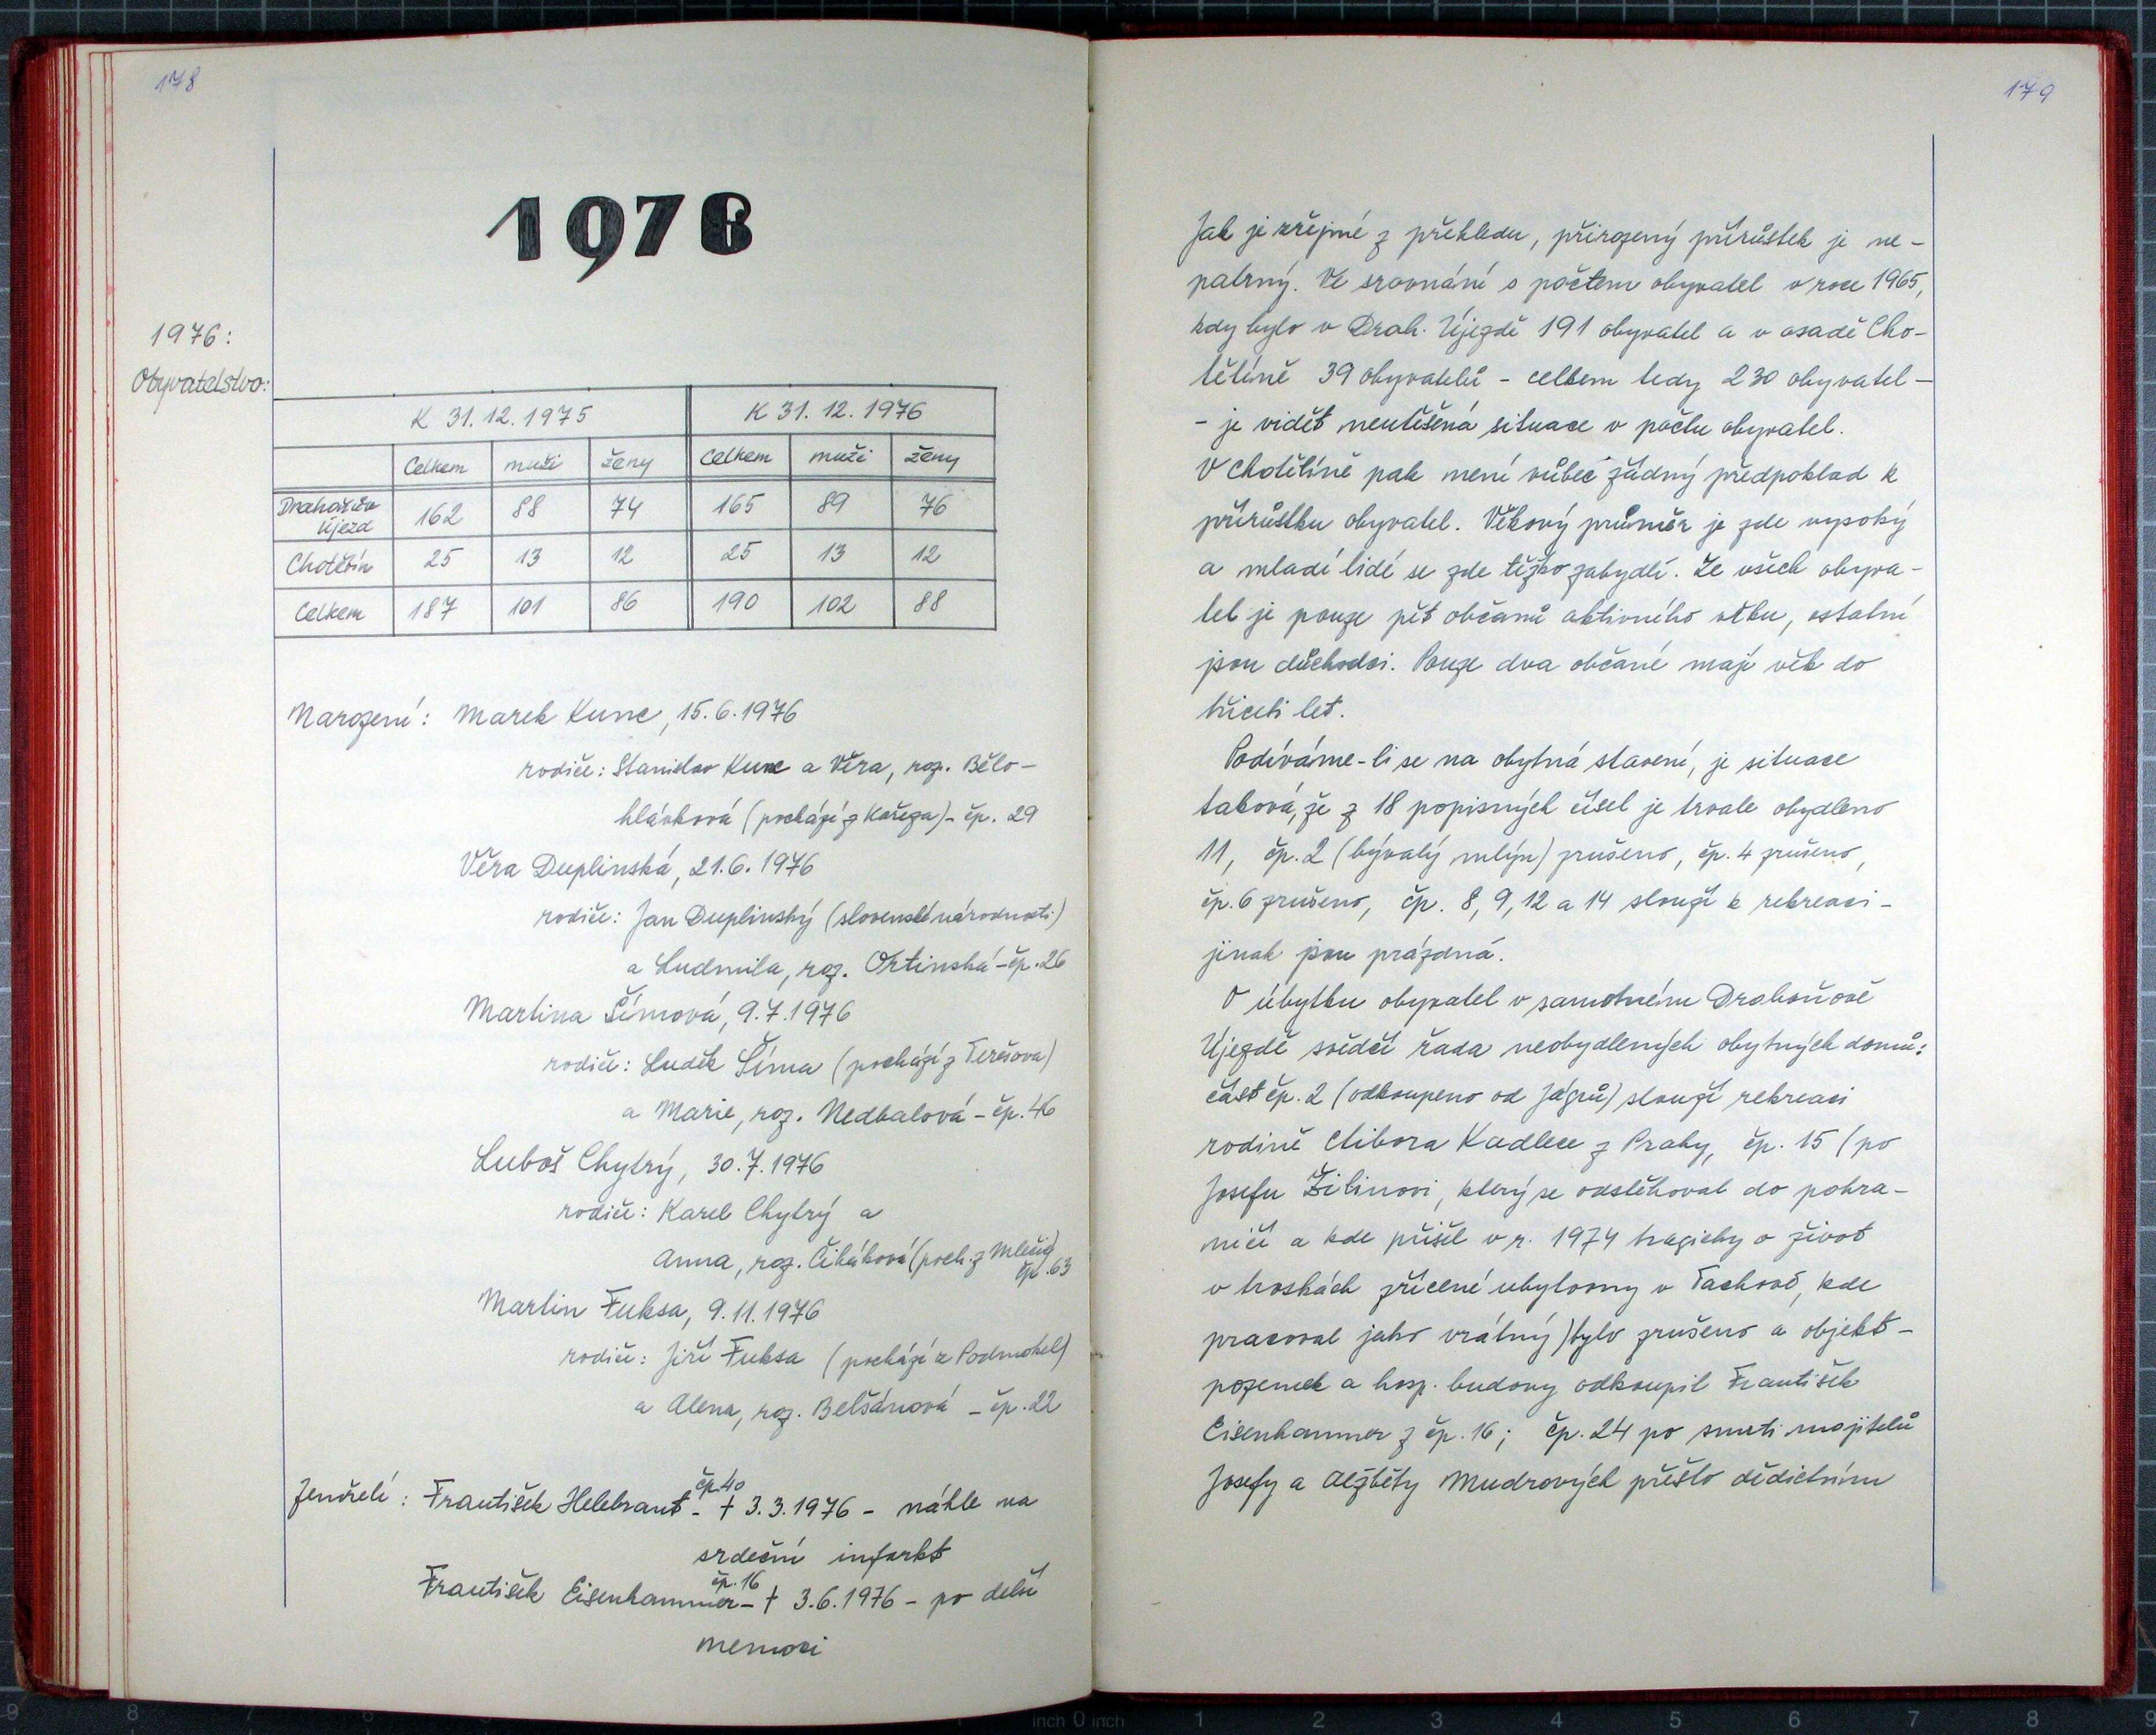 178
1976
1976:
Obyvatelstvo:
K 31.12.1975 K 31.12.1976
Celkem muži ženy Celkem muži ženy
Drahoňův Újezd 162 88 74 165 89 76
Chotětín 25 13 12 25 13 12
Celkem 187 101 86 190 102 88
Narození: Marek Kunc, 15.6.1976
rodiče: Stanislav Kunc a Věra, roz. Bělo-
hlávková (pochází z Kařeza) - čp. 29
Věra Duplinská, 21.6.1976
rodiče: Jan Duplinský (slovenské národnosti)
a Ludmila, roz. Ortinská - čp. 26
Martina Šímová, 9.7.1976
rodiče: Luděk Šíma (pochází z Terešova)
a Marie, roz. Nedbalová - čp. 46
Luboš Chytrý, 30.7.1976
rodiče: Karel Chytrý a
Anna, roz. Čibáková (poch. z Mlečic)
čp. 63
Martin Fuksa, 9.11.1976
rodiče: Jiří Fuksa (pochází z Podmokel)
a Alena, roz. Belšánová - čp. 22
čp. 40
Zemřelí: František Helebrant - † 3.3.1976 - náhle na
srdeční infarkt
čp. 16
František Eisenhammer - † 3.6.1976 - po delší
nemoci
179
Jak je zřejmé z přehledu, přirozený přírůstek je ne-
patrný. Ve srovnání s počtem obyvatel v roce 1965,
kdy bylo v Drah. Újezdě 191 obyvatel a v osadě Cho-
tětíně 39 obyvatelů - celkem tedy 230 obyvatel -
- je vidět neutěšená situace v počtu obyvatel.
V Chotětíně pak není vůbec žádný předpoklad k
přírůstku obyvatel. Věkový průměr je zde vysoký
a mladí lidé se zde těžko zabydlí. Ze všech obyva-
tel je pouze pět občanů aktivního věku, ostatní
jsou důchodci. Pouze dva občané mají věk do
třiceti let.
Podíváme-li se na obytná stavení, je situace
taková, že z 18 popisných čísel je trvale obydleno
11, čp. 2 (bývalý mlýn) zrušeno, čp. 4 zrušeno,
čp. 6 zrušeno, čp. 8, 9, 12 a 14 slouží k rekreaci -
jinak jsou prázdná.
O úbytku obyvatel v samotném Drahoňově
Újezdě svědčí řada neobydlených obytných domů:
část čp. 2 (odkoupeno od Jágrů) slouží rekreaci
rodině Ctibora Kadlece z Prahy, čp. 15 (po
Josefu Žilinovi, který se odstěhoval do pohra-
ničí a kde přišel v r. 1974 tragicky o život
v troskách zřícené ubytovny v Tachově, kde
pracoval jako vrátný) bylo zrušeno a objekt -
pozemek a hosp. budovy odkoupil František
Eisenhammer z čp. 16; čp. 24 po smrti majitelů
Josefy a Alžběty Mudrových přešlo dědictvím